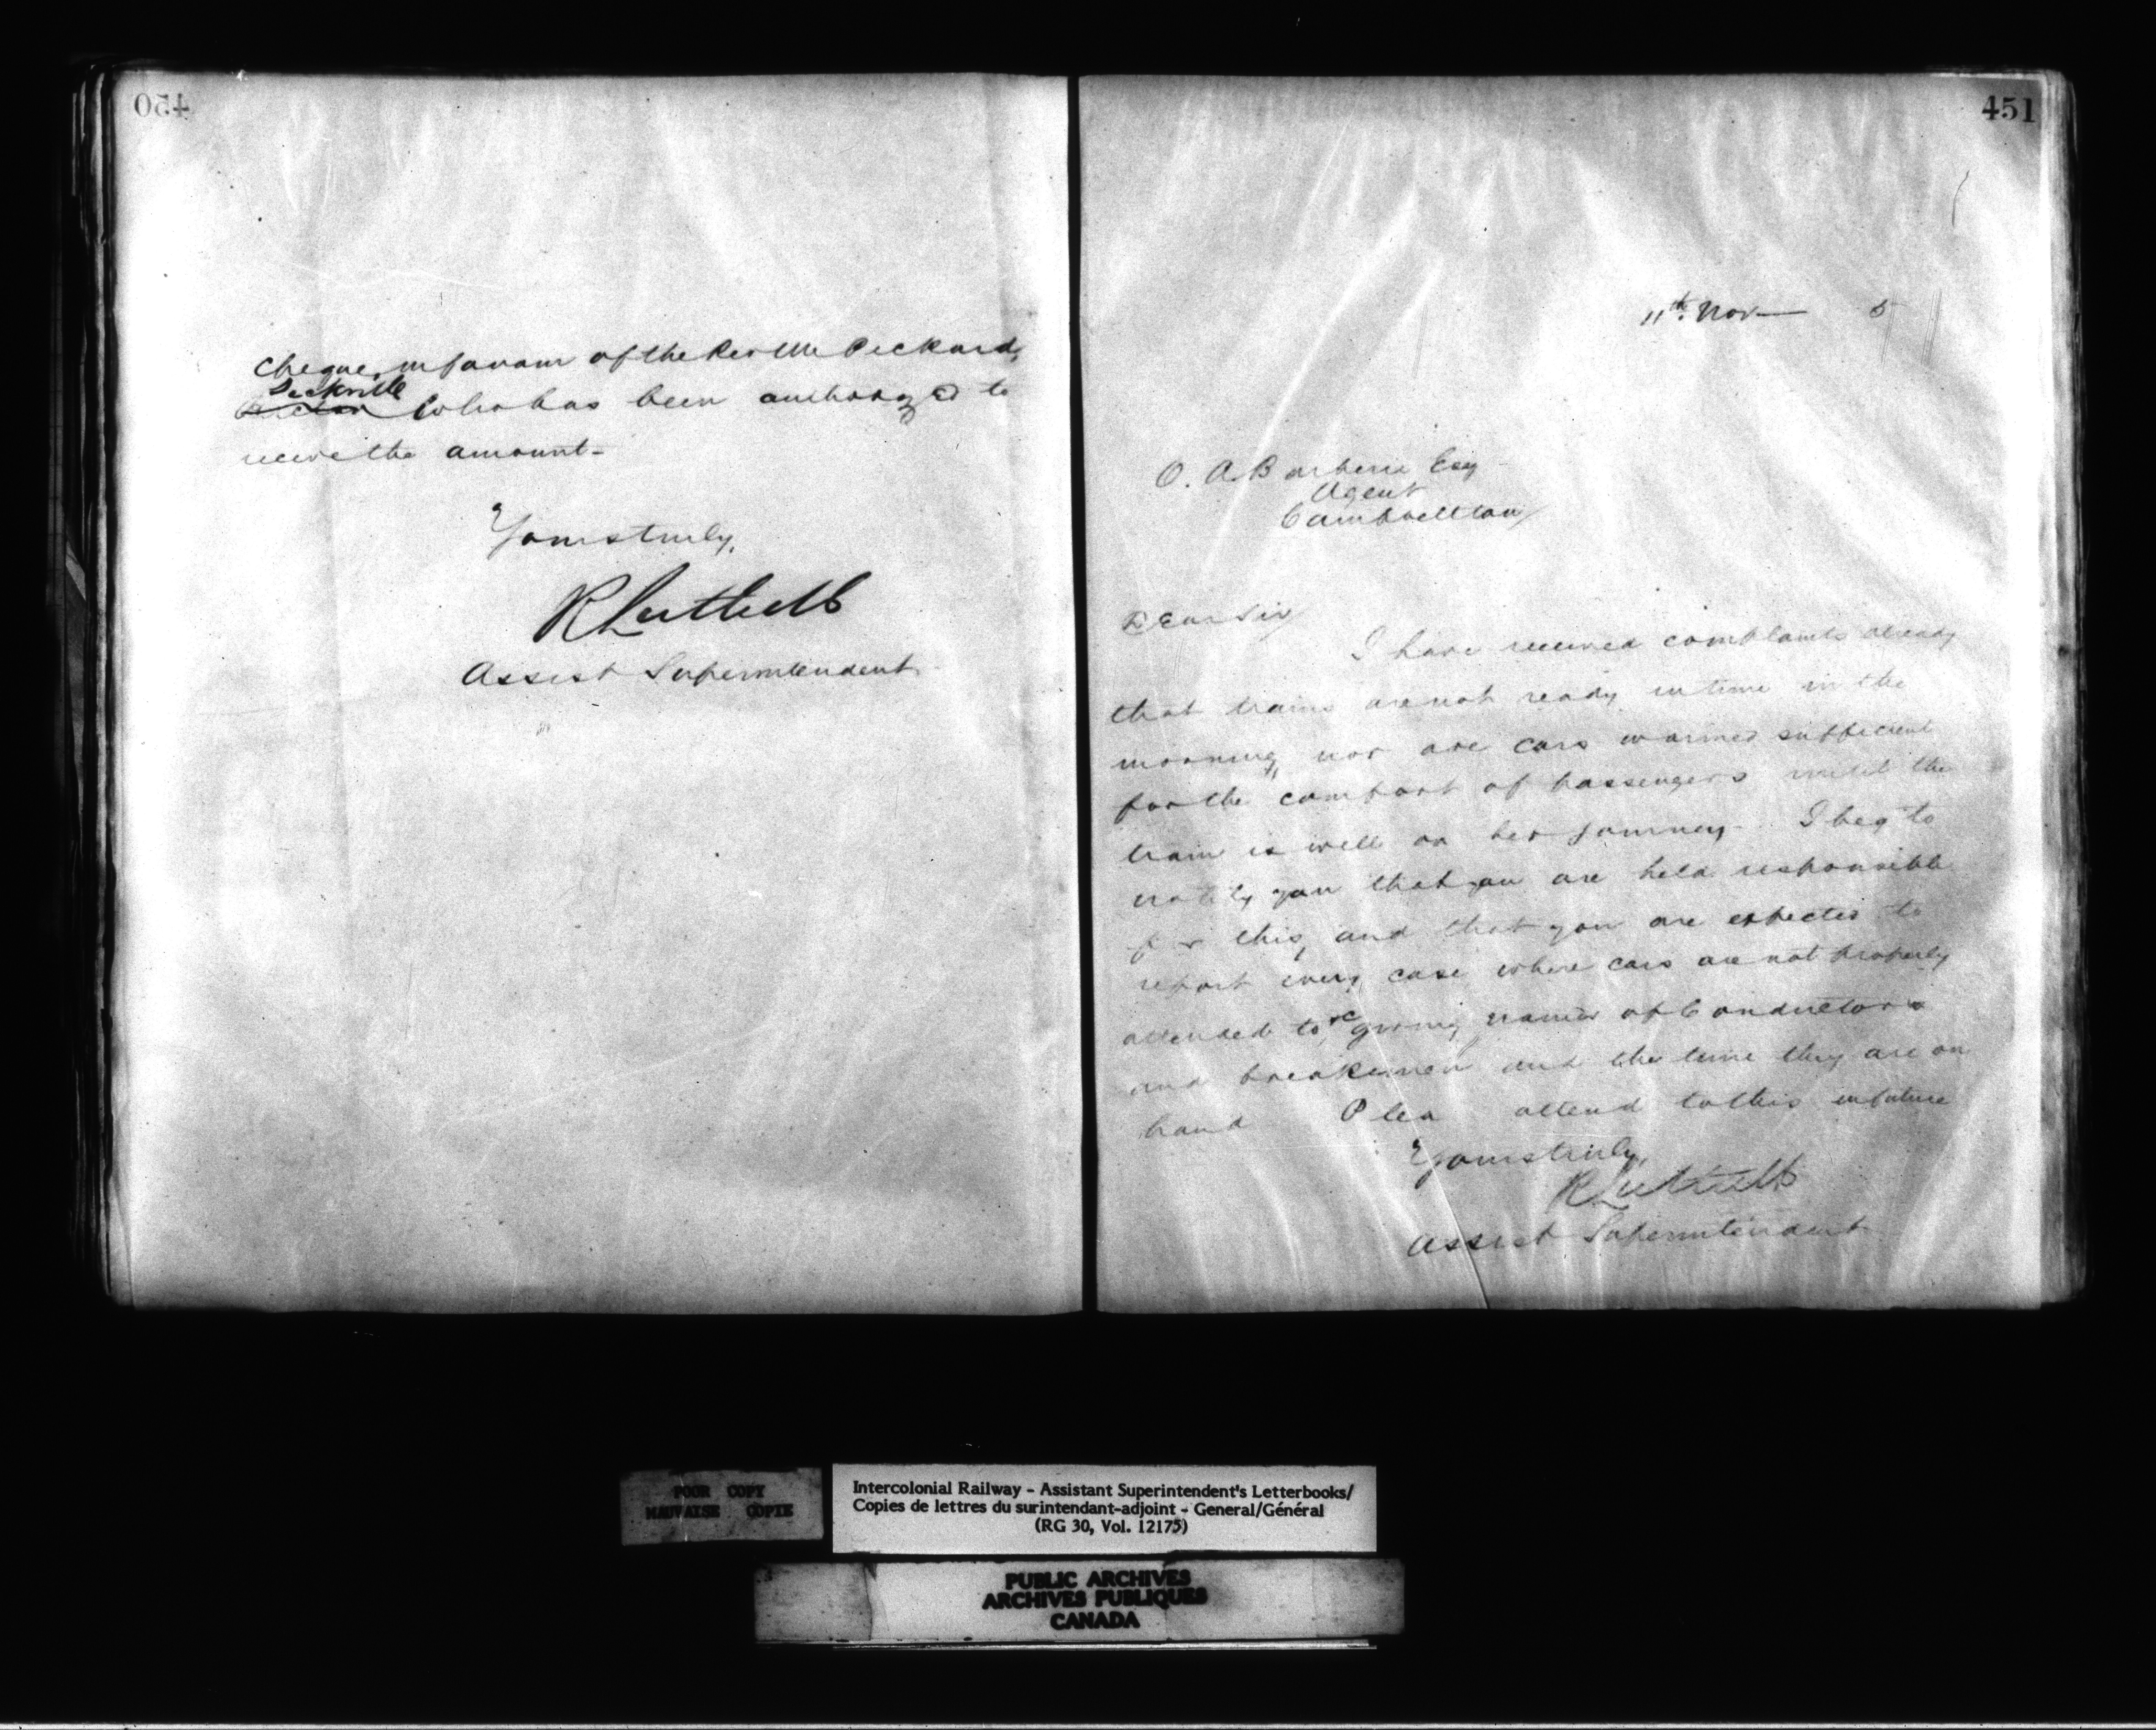 450
Cheque, in favour of the Rev Mr Pickard,
Sackville
who has been authorized to
receive the amount-
Yours truly,
R Luttrell
Assist Superintendent
451
11th Nov 5
O. A Barberie Esq
Agent
Cambpellton
Dear Sir
I have received complaints already
that trains are not ready in time in the
morning, nor are cars warmed sufficient
for the comfort of passengers until the
train is well on her journey. I beg to
notify you that you are held responsible
for this, and that you are expected to
report every case where cars are not properly
attended to, &c giving names of Conductors
and breakemen and the time they are on
hand Plea attend to this in future
Yours truly,
R Luttrell
Assist Superintendent
POOR COPY
MAUVAISE COPIE
Intercolonial Railway - Assistant Superintendent's Letterbooks/
Copies de lettres du surintendant-adjoint - General/Général
(RG 30, Vol. 12175)
PUBLIC ARCHIVES
ARCHIVES PUBLIQUES
CANADA